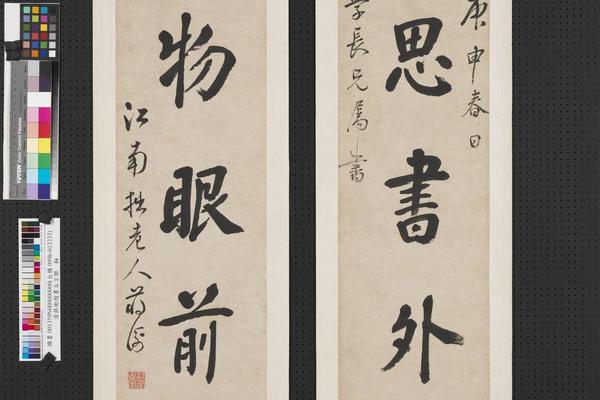 庚申春日
思書外
學長兄屬書
物眼前
江南拙老人蔣衡
TIFFEN Color Control Patches